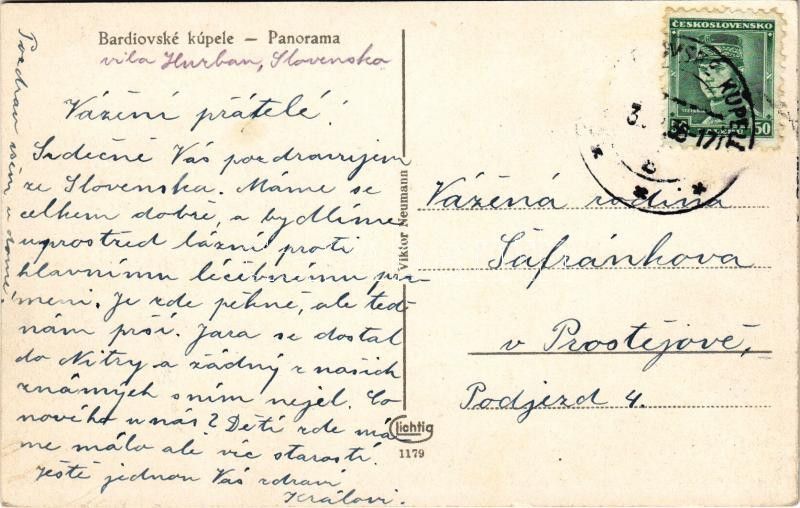 Bardiovské kúpele — Panorama
vila Hurban, Slovensko
Vážení přátelé!
Srdečně Vás pozdravujem
ze Slovenska. Máme se
celkem dobře, a bydlíme
uprostřed lázní proti
hlavnímu léčebnímu pra-
meni. Je zde pěkně, ale teď
nám prší. Jara se dostal
do Nitry a žádný z našich
známých s ním nejel. Co
nového u nás? Dětí zde má-
me málo ale víc starostí.
Ještě jednou Vás zdraví
Královi.
Pozdrav všem v domě!
Viktor Neumann
Lichtig
1179
ČESKOSLOVENSKO
50
KÚPELE
Vážená rodina
Šafránkova
v Prostějově,
Podjezd 4.